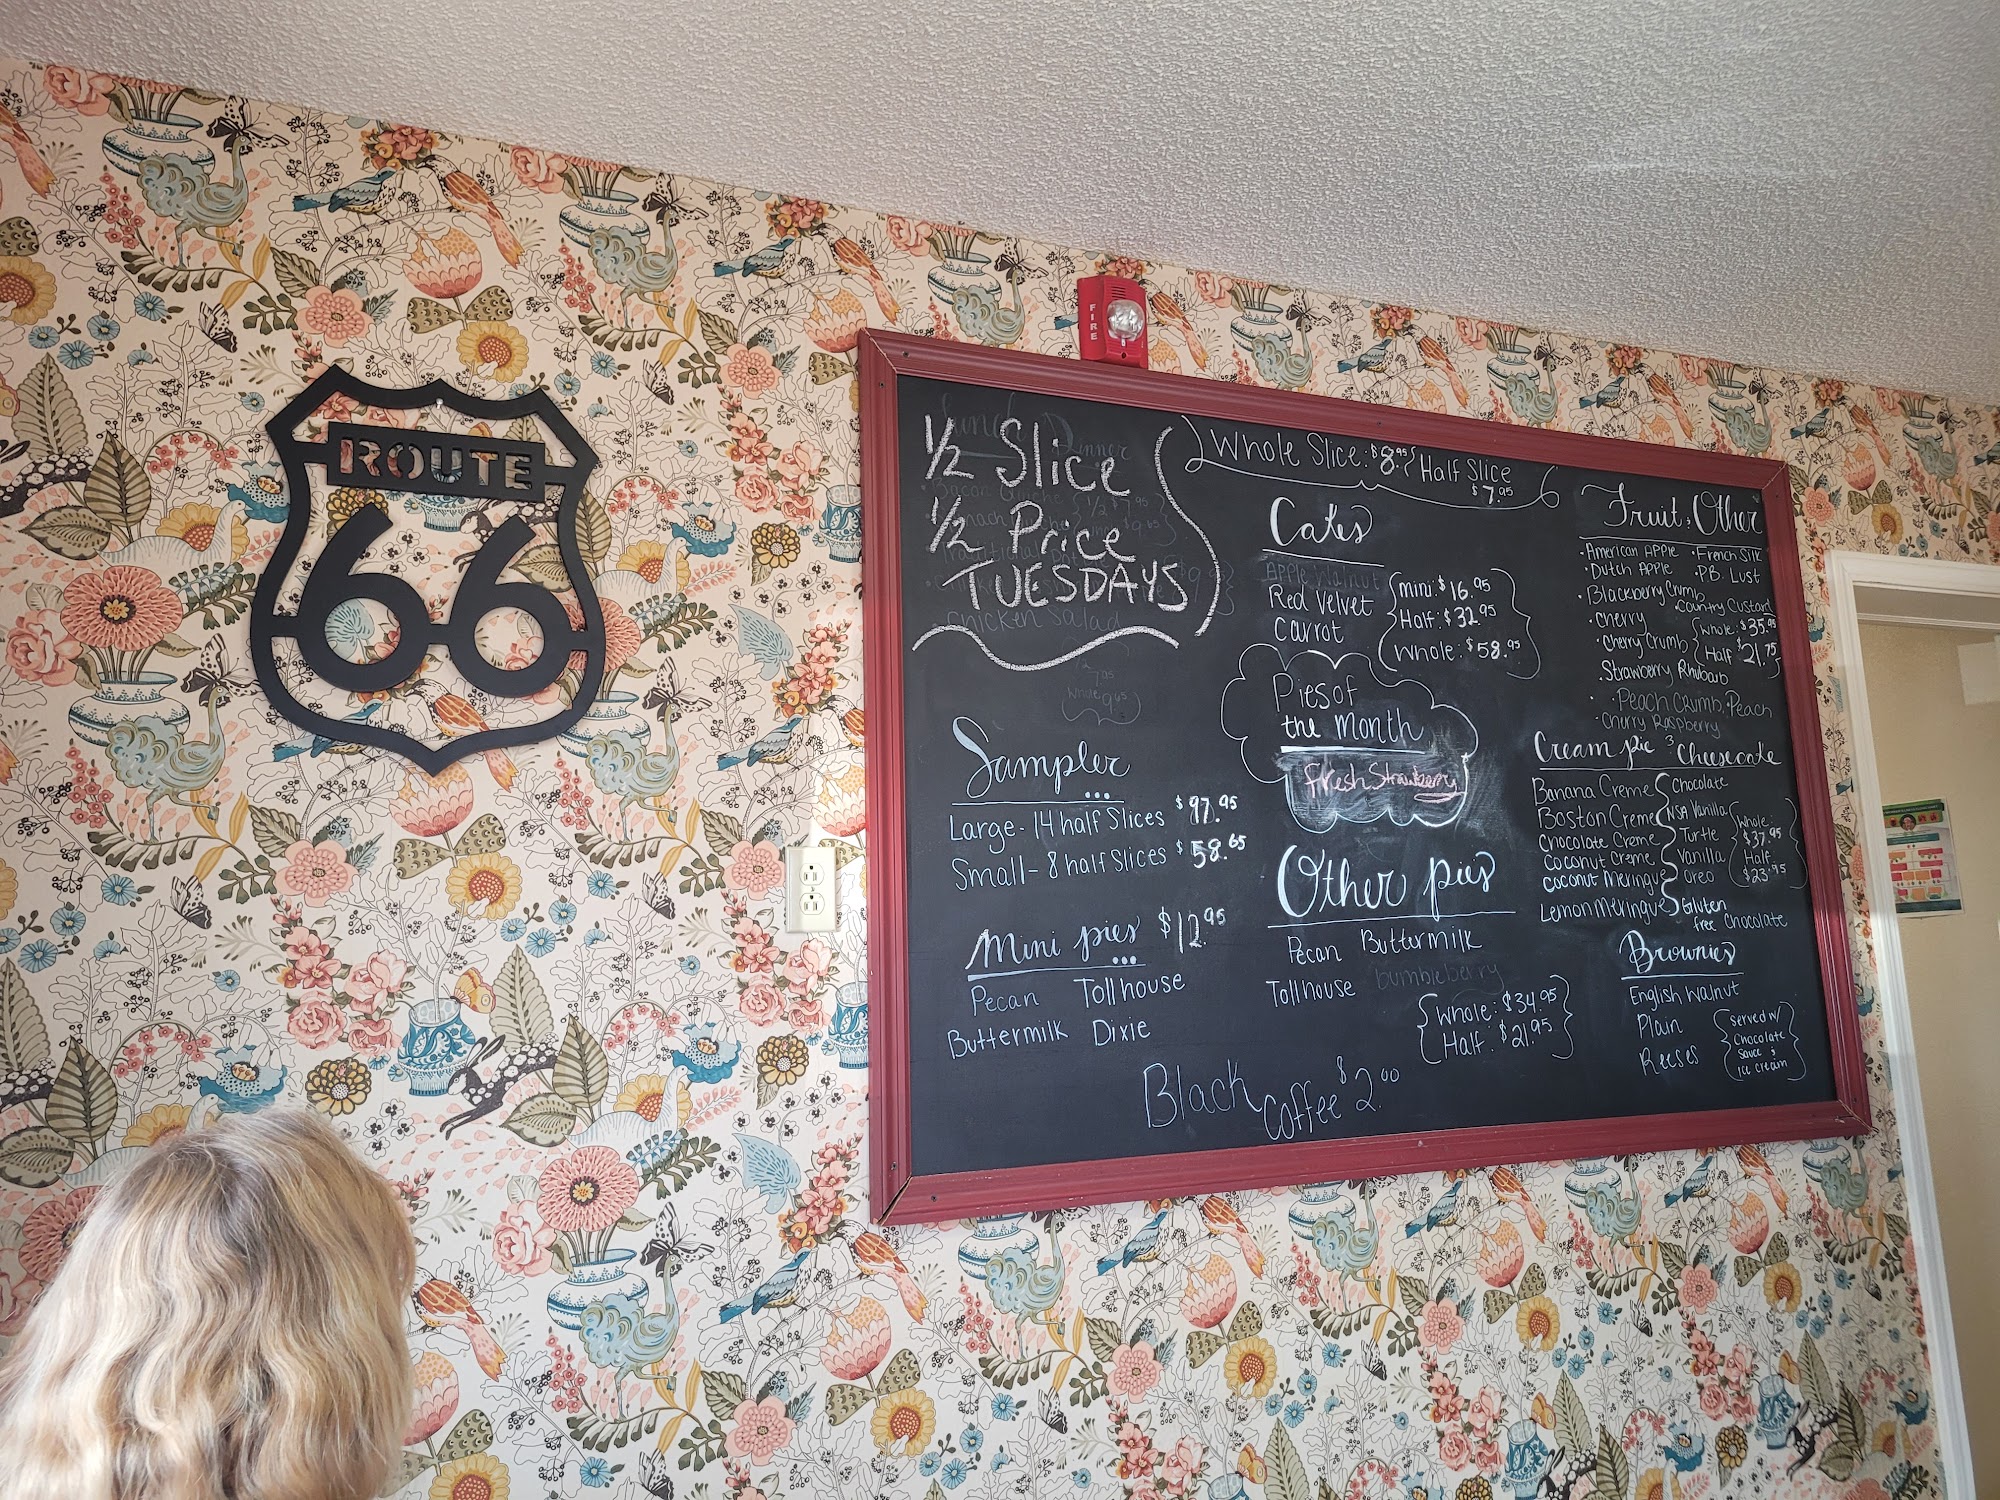 ROUTE
66
FIRE
1/2 Slice
1/2 Price
TUESDAYS
Whole Slice: $8.95
Half Slice
$7.95
Cakes
Apple Walnut
Red Velvet
Carrot
mini: $16.95
Half: $32.95
Whole: $58.95
Pies of
the Month
Fresh Strawberry
Sampler
Large - 14 half Slices $97.95
Small - 8 half Slices $58.65
Mini pies $12.95
Pecan Tollhouse
Buttermilk Dixie
Other pies
Pecan Buttermilk
Tollhouse bumbleberry
Whole: $34.95
Half: $21.95
Black Coffee $2.00
Fruit & Other
• American Apple • French Silk
• Dutch Apple • P.B. Lust
• Blackberry Crumb
• Country Custard
• Cherry
• Cherry Crumb
Whole: $35.95
Half $21.75
Strawberry Rhubarb
• Peach Crumb, Peach
• Cherry Raspberry
Cream pie & Cheesecake
Banana Creme
Boston Creme
Chocolate Creme
Coconut Creme
Coconut Meringue
Lemon Meringue
Chocolate
NSA Vanilla
Turtle
Vanilla
Oreo
Gluten
free Chocolate
Whole:
$37.95
Half
$23.95
Brownies
English Walnut
Plain
Reeses
Served w/
Chocolate
Sauce &
ice cream